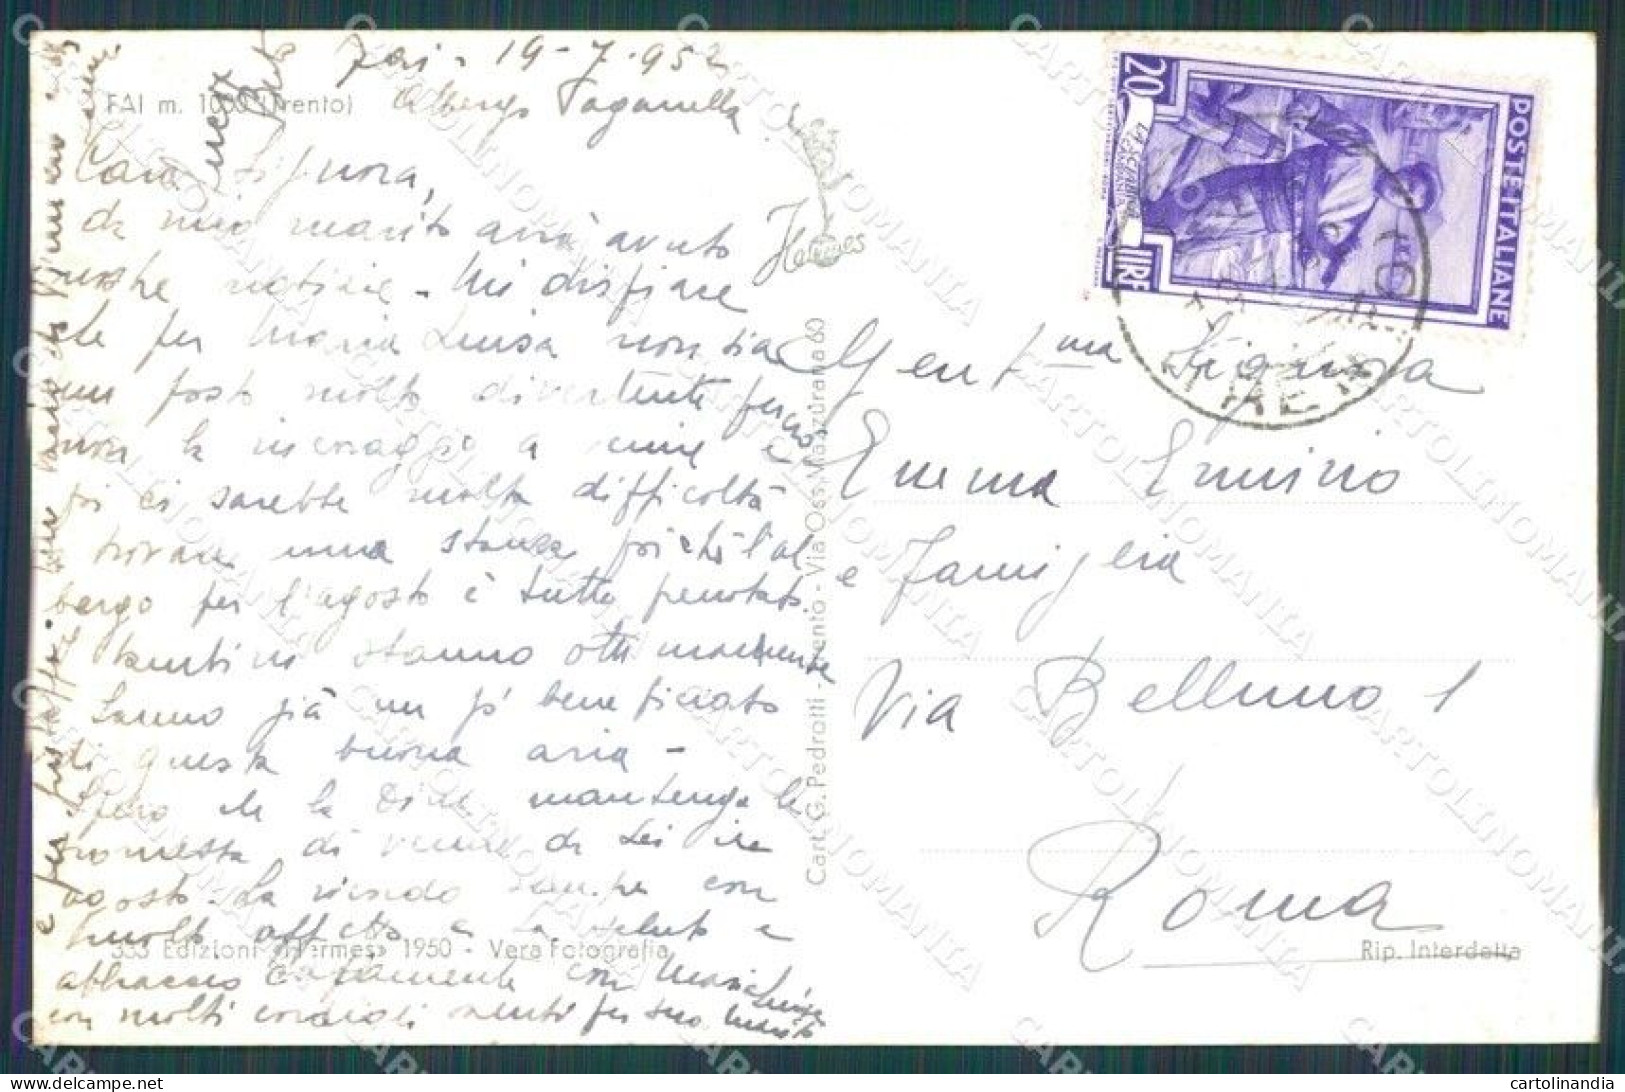 Fai - 19-7-952
FAI m. 1000 (Trento)
Albergo Paganella
Cara Signora,
da mio marito avrà avuto
nostre notizie - Mi dispiace
che per Maria Luisa non sia
un posto molto divertente perchè
non la incoraggio a venire e
poi ci sarebbe molta difficoltà
a trovare una stanza poichè l'al
bergo per l'agosto è tutto prenotato.
I bambini stanno ottimamente
hanno già un pò beneficiato
di questa buona aria -
Spero che la mantenga la
promessa di venire da Lei in
agosto. La ricordo sempre con
molto affetto e la saluto e
abbraccio caramente con Maria Luisa
con molti cordiali per suo marito
333 Edizioni «Hermes» 1950 - Vera Fotografia
Hermes
Cart. G. Pedrotti - Trento - Via Oss. Mazzurana 60
POSTE ITALIANE
20
LIRE
Gent.ma Signora
Emma Ermirio
e Famiglia
Via Belluno 1
Roma
Rip. Interdetta
CARTOLINOMANIA
cartolinandia